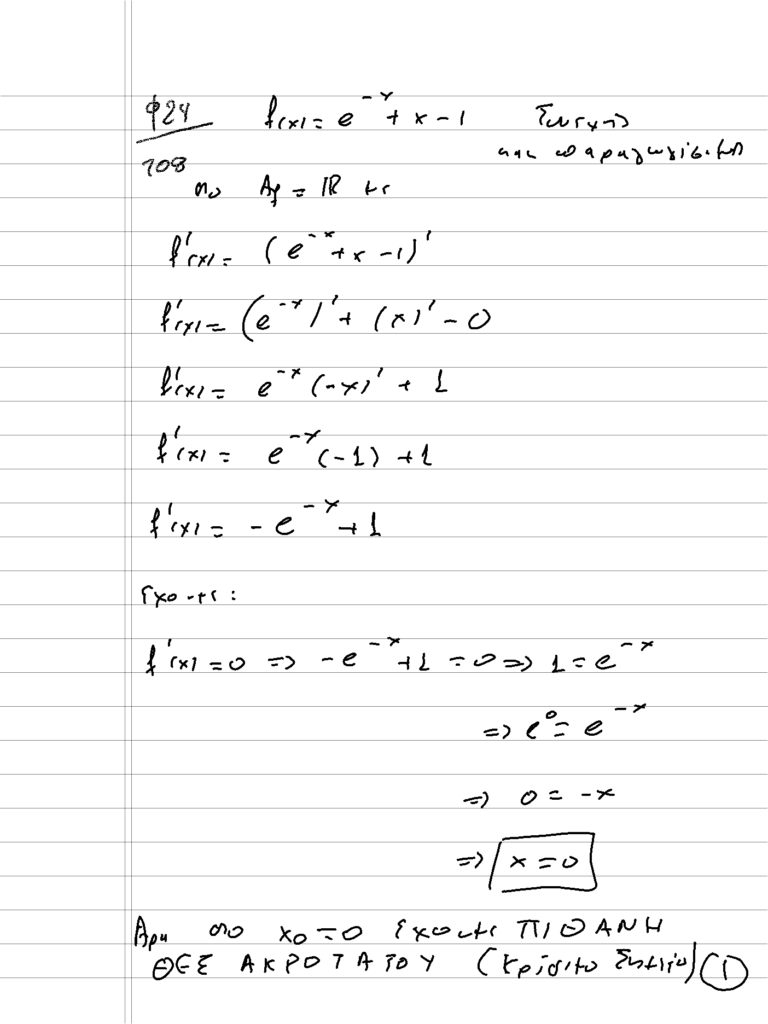 φ24 f(x) = e^{-x} + x - 1 Συνεχής
108 και παραγωγίσιμη
στο A_f = ℝ με
f'(x) = (e^{-x} + x - 1)'
f'(x) = (e^{-x})' + (x)' - 0
f'(x) = e^{-x} (-x)' + 1
f'(x) = e^{-x} (-1) + 1
f'(x) = - e^{-x} + 1
Έχουμε :
f'(x) = 0 => - e^{-x} + 1 = 0 => 1 = e^{-x}
=> e^0 = e^{-x}
=> 0 = -x
=> x = 0
Άρα στο x_0 = 0 έχουμε ΠΙΘΑΝΗ
ΘΕΣ ΑΚΡΟΤΑΤΟΥ (Κρίσιμο Σημείο) ①